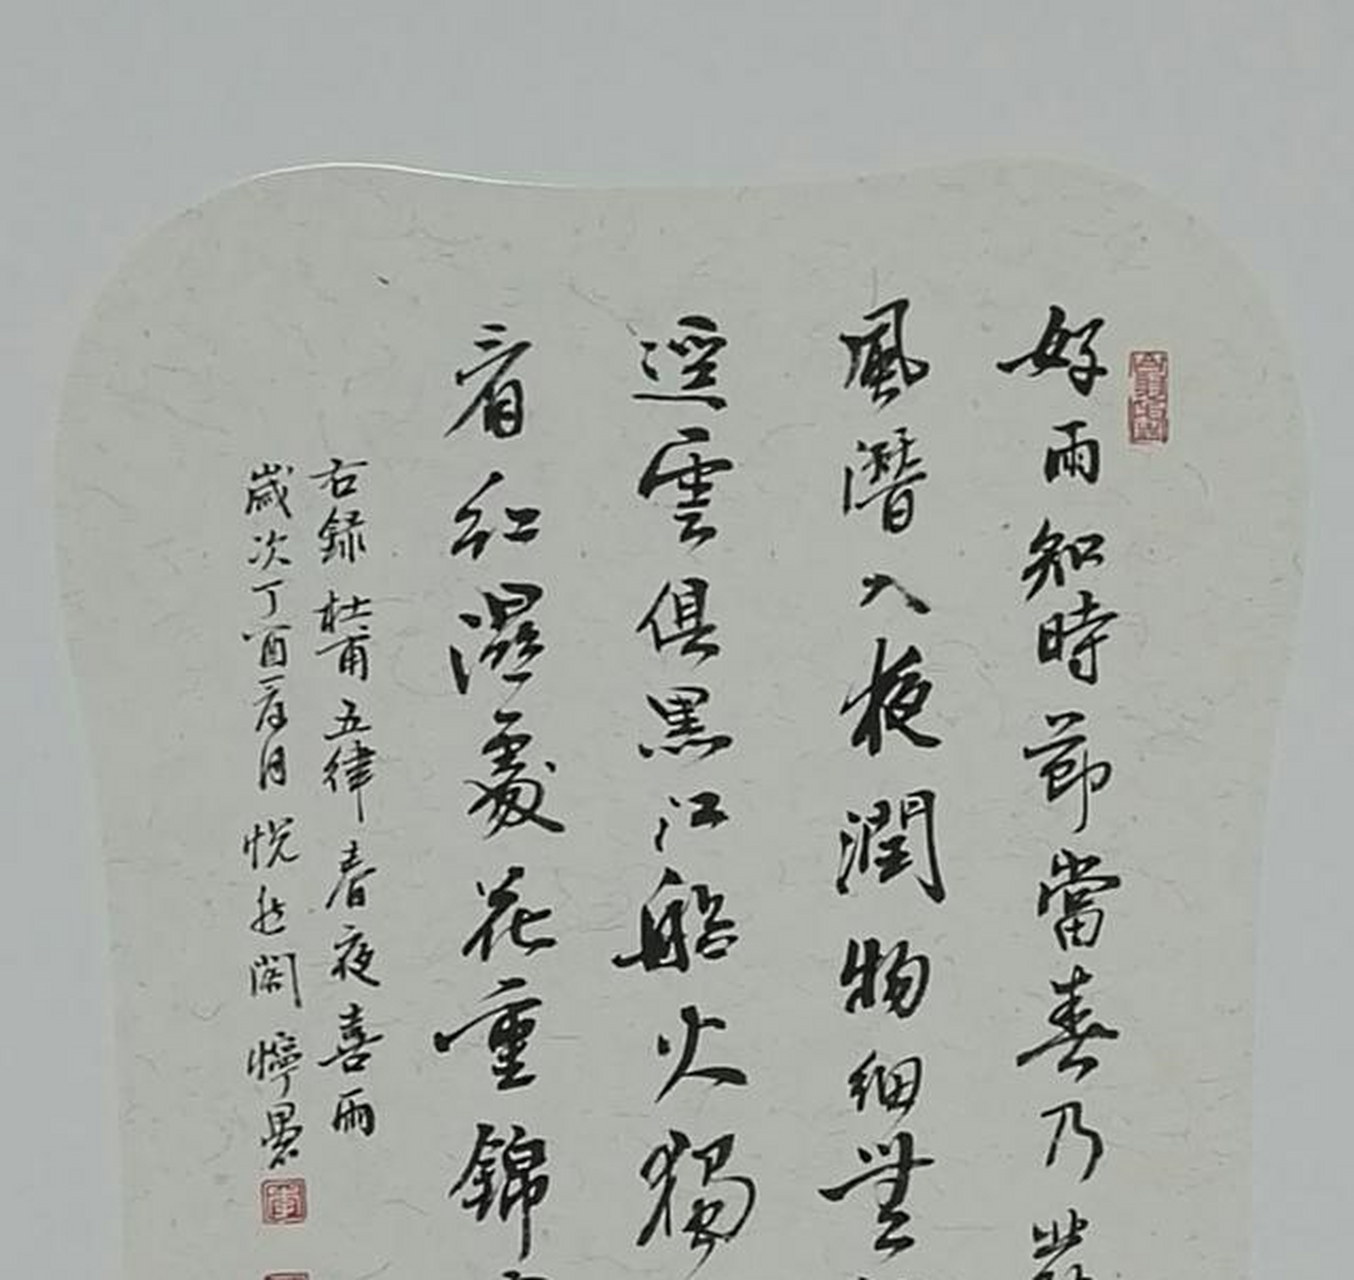 好雨知時節當春乃
風潛入夜潤物細無
逕雲俱黑江船火獨
看紅濕處花重錦
右録杜甫五律春夜喜雨
歲次丁酉春月悦然閣